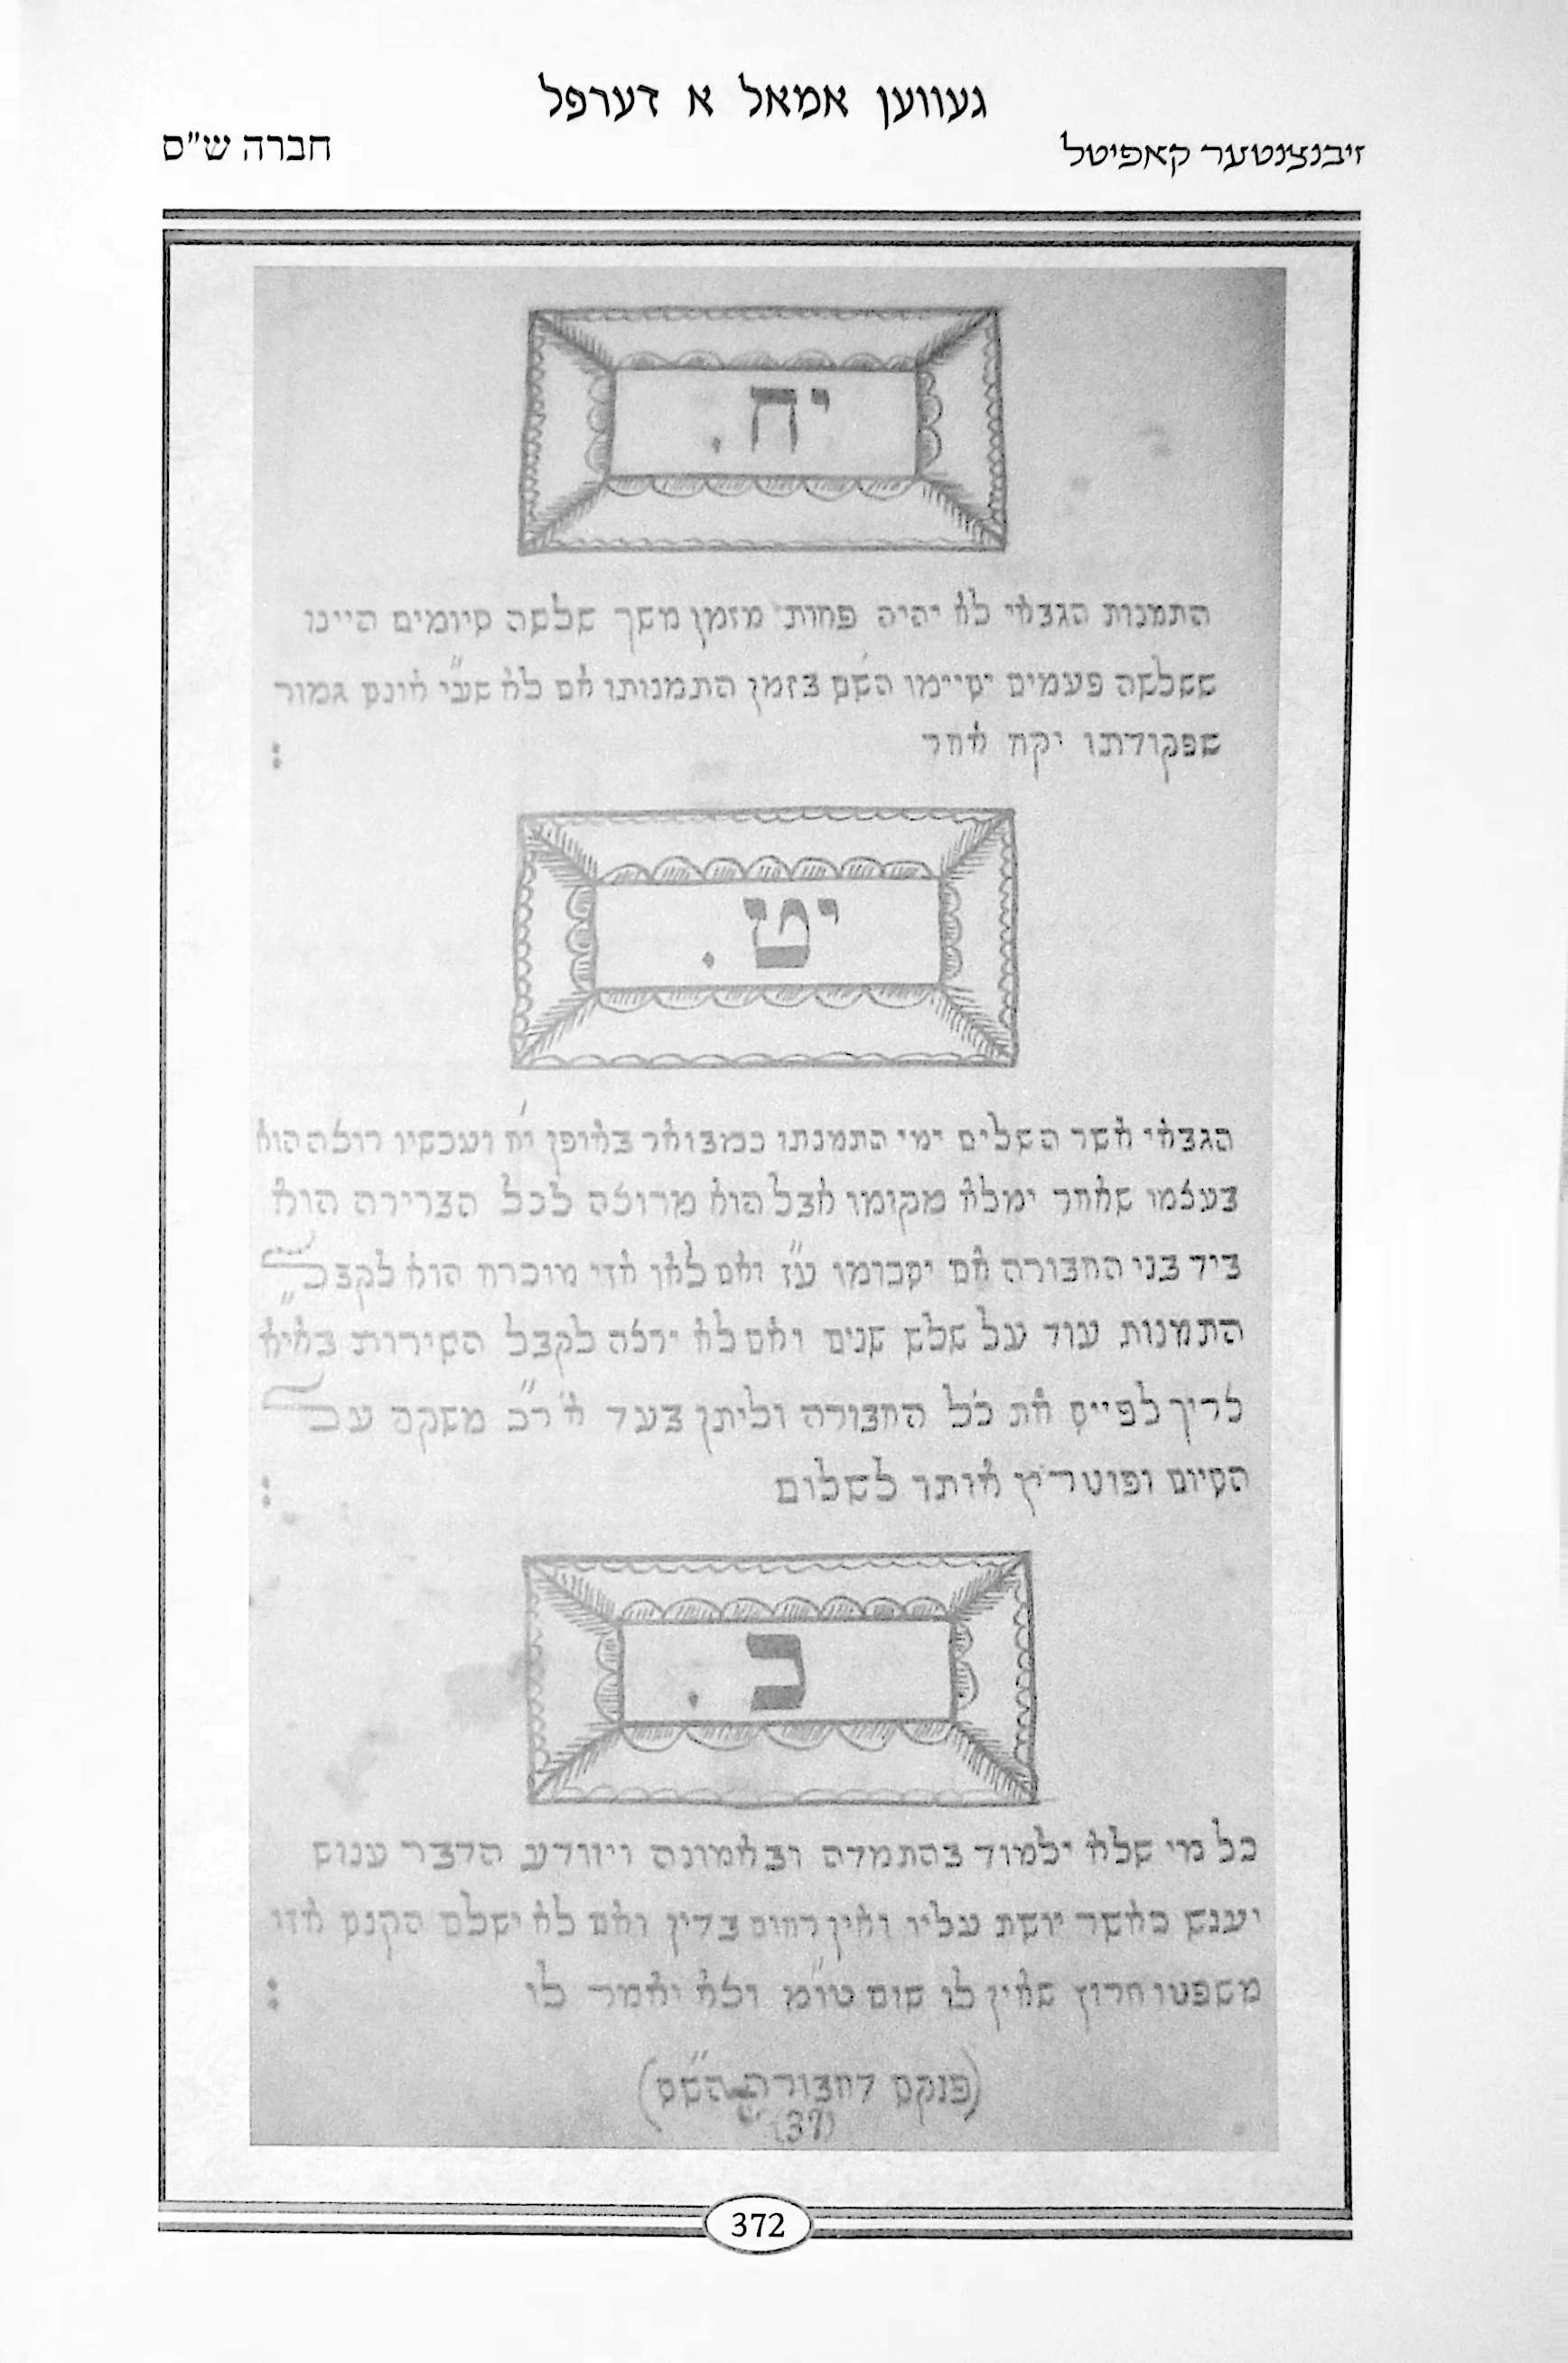 געווען אמאל א דערפל
זיבנצנטער קאפיטל
חברה ש"ס
יח.
התמנות הגבאי לא יהיה פחות מזמן משך שלשה סיומים היינו
ששלשה פעמים יסיימו הש"ס בזמן התמנותו אם לא שע"י אונס גמור
שפקודתו יקח אחר :
יט.
הגבאי אשר השלים ימי התמנתו כמבואר באופן י"ח ועכשיו רוצה הוא
בעצמו שאחר ימלא מקומו אבל הוא מרוצה לכל הברירה הוא
ביד בני החבורה אם יסכומו ע"ז ואם לאו אזי מוכרח הוא לקבל
התמנות עוד על שלש שנים ואם לא ירצה לקבל השירות באי"א
צריך לפייס את כל החבורה וליתן בעד א' ר"כ משקה על
הסיום ופוטרין אותו לשלום :
כ.
כל מי שלא ילמוד בהתמדה ובאמונה ויוודע הדבר ענוש
יענש כאשר יושת עליו ואין רחום בדין ואם לא ישלם הקנס אזי
משפטו חרוץ שאין לו שום טו"מ ולא יאמר לו :
(פנקס דחבורה הש"ס)
(37)
372